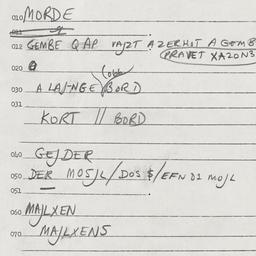 010 MORDE
011
012 GEMBE QAP VAJZT AZERHOT A GEMB
PRAVET XAZONS
020
030 A LAJ-NGE BORD
031
KORT // BORD
040 GEJDER
050 DER MOSJL / DOS $ / EFN DI MOJL
051
060 MAJLXEN
070 MAJLXENS